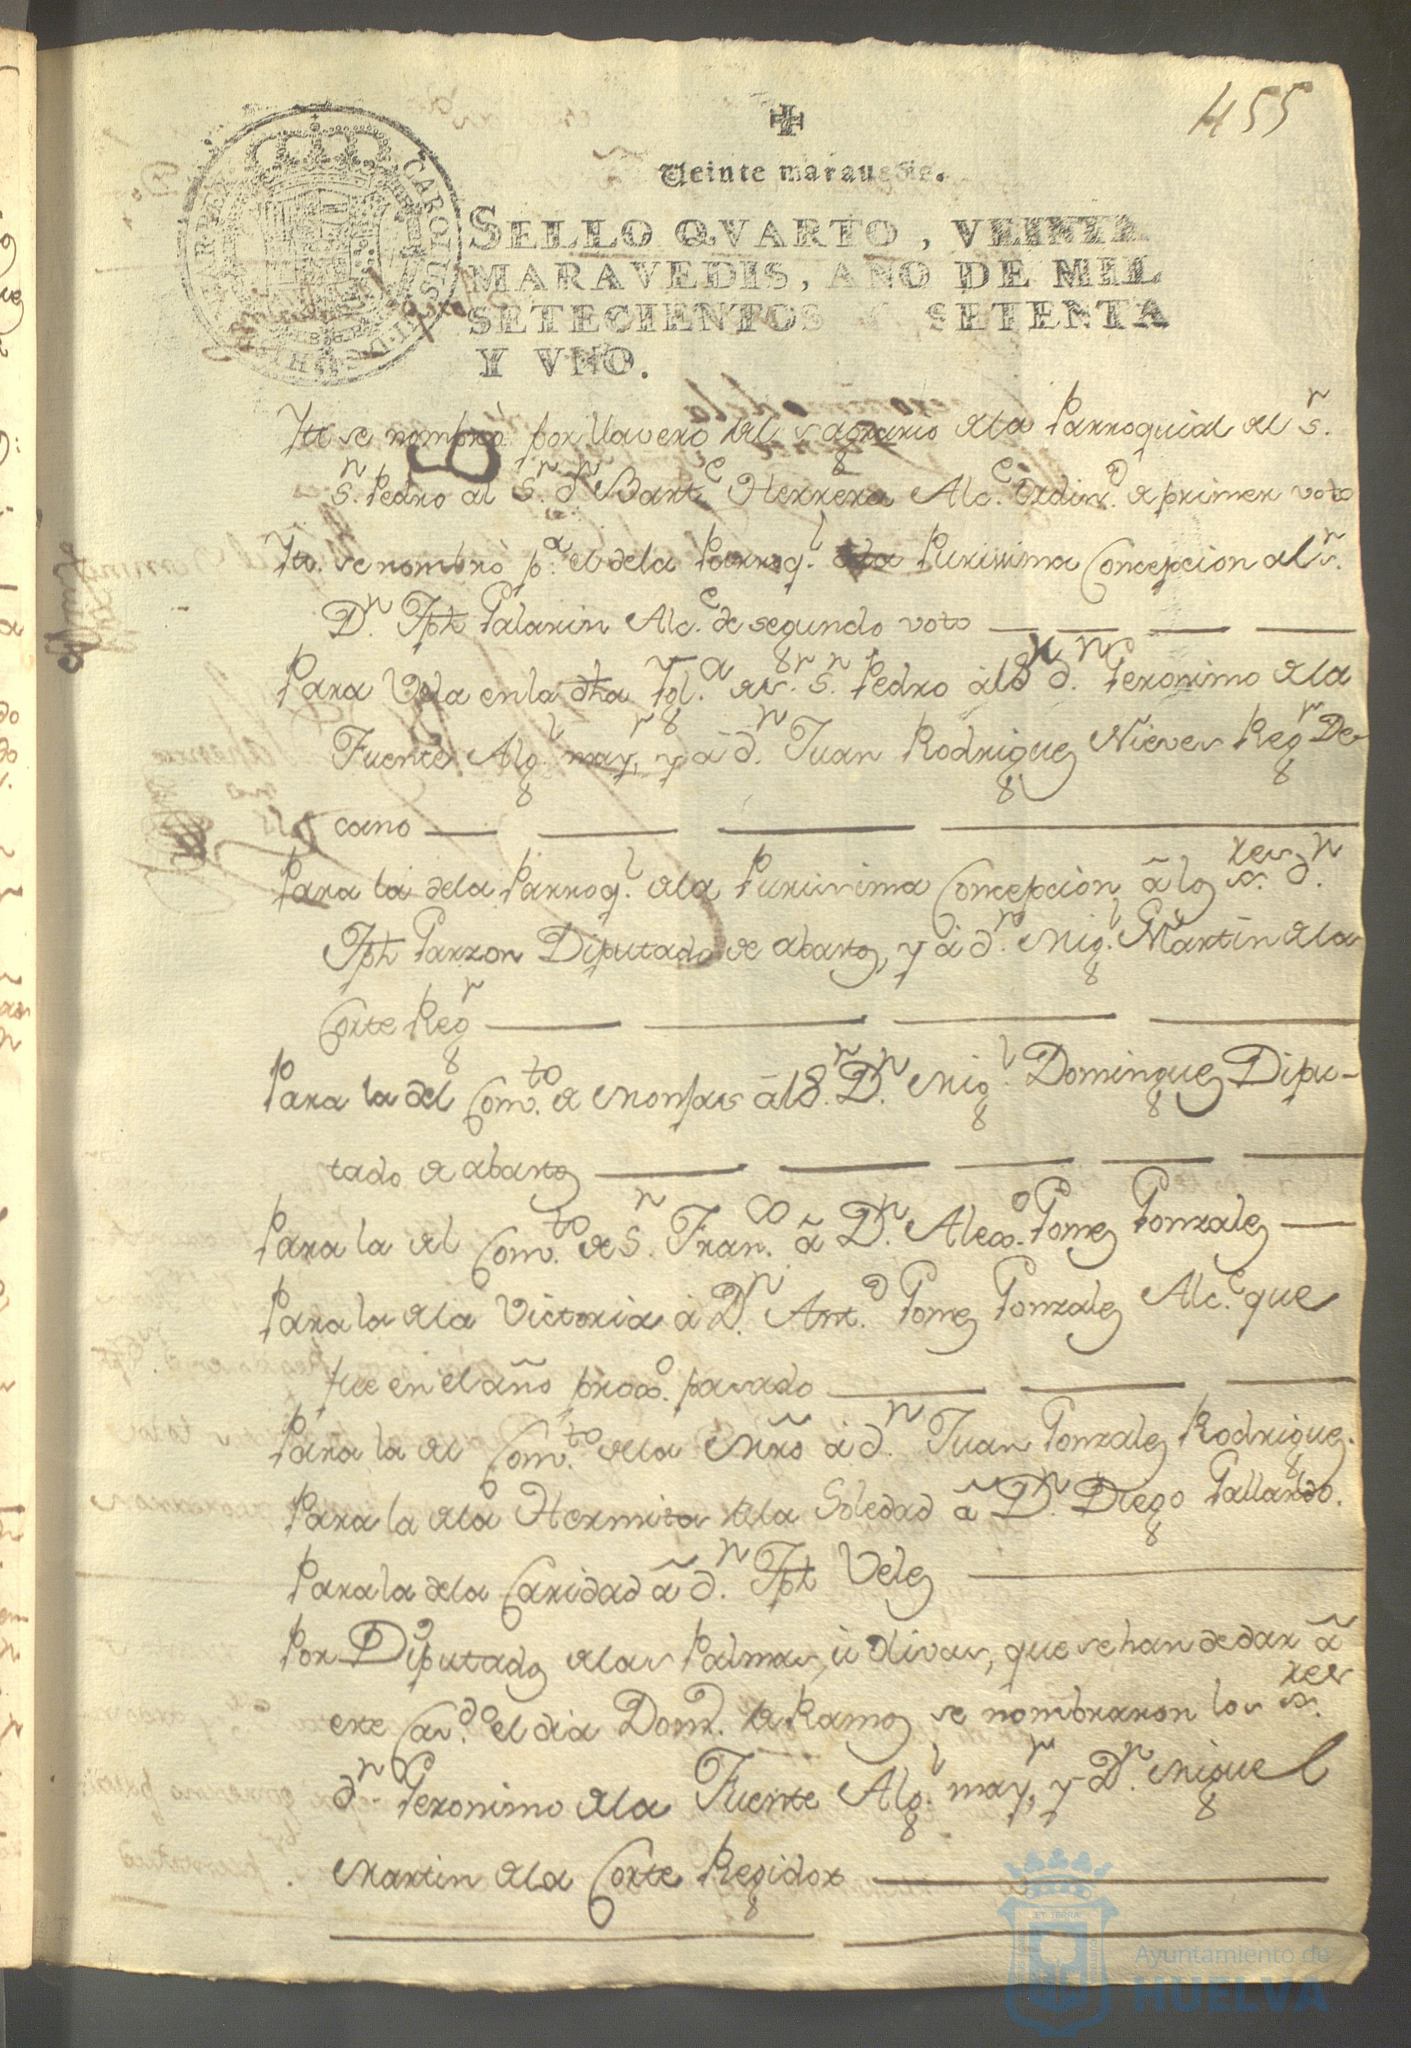 455
Veinte maravedis.
SELLO QVARTO, VEINTE
MARAVEDIS, AÑO DE MIL
SETECIENTOS Y SETENTA
Y VNO.
Itt. se nombró por llavero del sagrario de la Parroquial del sr.
Sn. Pedro al Sr. dn. Barte. Herrera Alce. Ordino. de primer voto
Itt. se nombró pa. el de la Parroql. de la Purissima Concepcion al sr.
Dn. Jph Palarin Alce. de segundo voto
Para la de la dha Igla. de sr. Sn. Pedro á los dn. Geronimo de la
Fuente Algl. mayr. y á dn. Juan Rodriguez Nieves Regr. De-
cano
Para la de la Parroql. de la Purissima Concepcion â los sres. dn.
Jph Garzon Diputado de abastos, y á dn. Migl. Martin de la
Corte Regr.
Para la del Comto. de Monjas âl Sr. Dn. Migl. Dominguez Dipu-
tado de abastos
Para la del Comto. de Sn. Franco. â Dn. Alexo. Gomez Gonzalez
Para la de la Victoria á Dn. Anto. Gomez Gonzalez Alce. que
fue en el año proxo. pasado
Para la del Comto. de la Mrd á dn. Juan Gonzalez Rodriguez.
Para la de la Hermita de la Soledad â Dn. Diego Gallardo.
Para la de la Caridad â dn. Jph Velez
Por Diputados de las Palmas, ù olivas, que se han de dar â
este Cavdo. el dia Domo. de Ramos se nombraron los sres.
dn. Geronimo de la Fuente Algl. mayr. y Dn. Miguel
Martin de la Corte Regidor
Ayuntamiento de
HUELVA